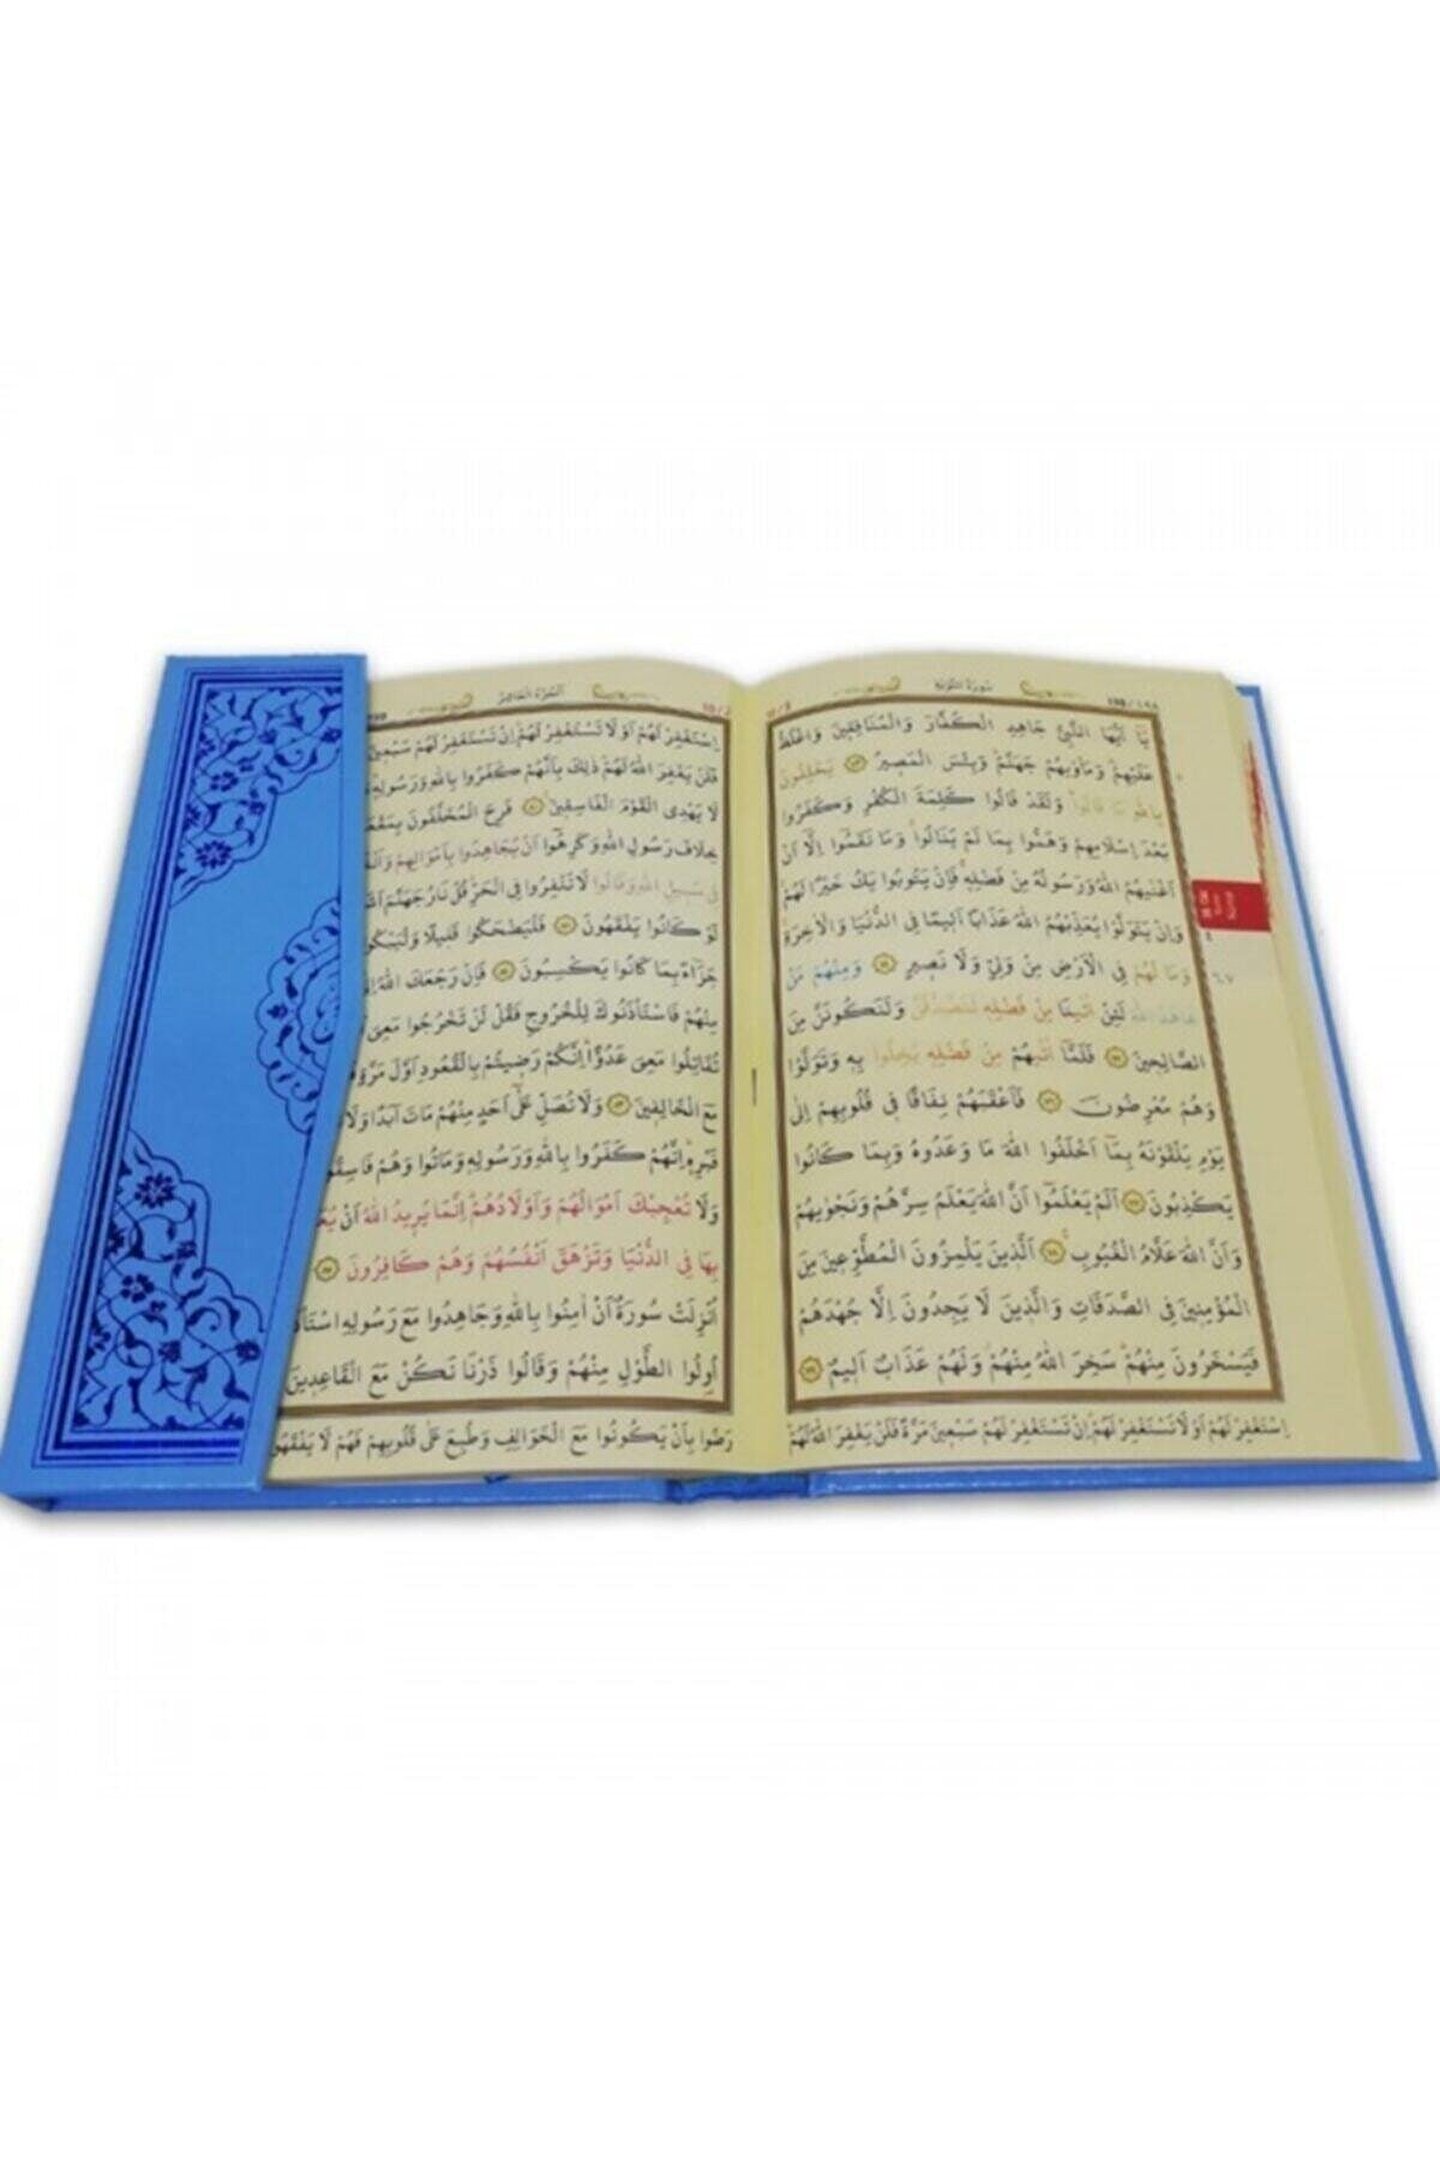 ١٩٨ / 198
سورة التوبة
يَٓا اَيُّهَا النَّبِيُّ جَاهِدِ الْكُفَّارَ وَالْمُنَافِقِينَ وَاغْلُظْ
عَلَيْهِمْ وَمَأْوٰيهُمْ جَهَنَّمُ وَبِئْسَ الْمَصِيرُ ﴿٧٣﴾ يَحْلِفُونَ
بِاللّٰهِ مَا قَالُوا وَلَقَدْ قَالُوا كَلِمَةَ الْكُفْرِ وَكَفَرُوا
بَعْدَ اِسْلَامِهِمْ وَهَمُّوا بِمَا لَمْ يَنَالُوا وَمَا نَقَمُٓوا اِلَّٓا اَنْ
اَغْنٰيهُمُ اللّٰهُ وَرَسُولُهُ مِنْ فَضْلِهِ فَاِنْ يَتُوبُوا يَكُ خَيْرًا لَهُمْ
وَاِنْ يَتَوَلَّوْا يُعَذِّبْهُمُ اللّٰهُ عَذَابًا اَلِيمًا فِي الدُّنْيَا وَالْاٰخِرَةِ
وَمَا لَهُمْ فِي الْاَرْضِ مِنْ وَلِيٍّ وَلَا نَصِيرٍ ﴿٧٤﴾ وَمِنْهُمْ مَنْ
عَاهَدَ اللّٰهَ لَئِنْ اٰتٰينَا مِنْ فَضْلِهِ لَنَصَّدَّقَنَّ وَلَنَكُونَنَّ مِنَ
الصَّالِحِينَ ﴿٧٥﴾ فَلَمَّٓا اٰتٰيهُمْ مِنْ فَضْلِهِ بَخِلُوا بِهِ وَتَوَلَّوْا
وَهُمْ مُعْرِضُونَ ﴿٧٦﴾ فَاَعْقَبَهُمْ نِفَاقًا فِي قُلُوبِهِمْ اِلٰى
يَوْمِ يَلْقَوْنَهُ بِمَٓا اَخْلَفُوا اللّٰهَ مَا وَعَدُوهُ وَبِمَا كَانُوا
يَكْذِبُونَ ﴿٧٧﴾ اَلَمْ يَعْلَمُٓوا اَنَّ اللّٰهَ يَعْلَمُ سِرَّهُمْ وَنَجْوٰيهُمْ
وَاَنَّ اللّٰهَ عَلَّامُ الْغُيُوبِ ﴿٧٨﴾ اَلَّذِينَ يَلْمِزُونَ الْمُطَّوِّعِينَ مِنَ
الْمُؤْمِنِينَ فِي الصَّدَقَاتِ وَالَّذِينَ لَا يَجِدُونَ اِلَّا جُهْدَهُمْ
فَيَسْخَرُونَ مِنْهُمْ سَخِرَ اللّٰهُ مِنْهُمْ وَلَهُمْ عَذَابٌ اَلِيمٌ ﴿٧٩﴾
اِسْتَغْفِرْ لَهُمْ اَوْ لَا تَسْتَغْفِرْ لَهُمْ اِنْ تَسْتَغْفِرْ لَهُمْ سَبْعِينَ مَرَّةً فَلَنْ يَغْفِرَ اللّٰهُ لَهُمْ
الجزء العاشر
اِسْتَغْفِرْ لَهُمْ اَوْ لَا تَسْتَغْفِرْ لَهُمْ اِنْ تَسْتَغْفِرْ لَهُمْ سَبْعِينَ
فَلَنْ يَغْفِرَ اللّٰهُ لَهُمْ ذٰلِكَ بِاَنَّهُمْ كَفَرُوا بِاللّٰهِ وَرَسُولِهِ
لَا يَهْدِي الْقَوْمَ الْفَاسِقِينَ ﴿٨٠﴾ فَرِحَ الْمُخَلَّفُونَ
خِلَافَ رَسُولِ اللّٰهِ وَكَرِهُٓوا اَنْ يُجَاهِدُوا بِاَمْوَالِهِمْ
فِي سَبِيلِ اللّٰهِ وَقَالُوا لَا تَنْفِرُوا فِي الْحَرِّ قُلْ نَارُ جَهَنَّمَ
لَوْ كَانُوا يَفْقَهُونَ ﴿٨١﴾ فَلْيَضْحَكُوا قَلِيلًا وَلْيَبْكُوا
جَزَٓاءً بِمَا كَانُوا يَكْسِبُونَ ﴿٨٢﴾ فَاِنْ رَجَعَكَ اللّٰهُ
مِنْهُمْ فَاسْتَأْذَنُوكَ لِلْخُرُوجِ فَقُلْ لَنْ تَخْرُجُوا مَعِيَ
تُقَاتِلُوا مَعِيَ عَدُوًّا اِنَّكُمْ رَضِيتُمْ بِالْقُعُودِ اَوَّلَ
مَعَ الْخَالِفِينَ ﴿٨٣﴾ وَلَا تُصَلِّ عَلٰٓى اَحَدٍ مِنْهُمْ مَاتَ اَبَدًا وَلَا
قَبْرِهِ اِنَّهُمْ كَفَرُوا بِاللّٰهِ وَرَسُولِهِ وَمَاتُوا وَهُمْ
وَلَا تُعْجِبْكَ اَمْوَالُهُمْ وَاَوْلَادُهُمْ اِنَّمَا يُرِيدُ اللّٰهُ اَنْ
بِهَا فِي الدُّنْيَا وَتَزْهَقَ اَنْفُسُهُمْ وَهُمْ كَافِرُونَ ﴿٨٥﴾
اُنْزِلَتْ سُورَةٌ اَنْ اٰمِنُوا بِاللّٰهِ وَجَاهِدُوا مَعَ رَسُولِهِ
اُولُوا الطَّوْلِ مِنْهُمْ وَقَالُوا ذَرْنَا نَكُنْ مَعَ الْقَاعِدِينَ
رَضُوا بِاَنْ يَكُونُوا مَعَ الْخَوَالِفِ وَطُبِعَ عَلٰى قُلُوبِهِمْ فَهُمْ لَا يَفْقَهُونَ